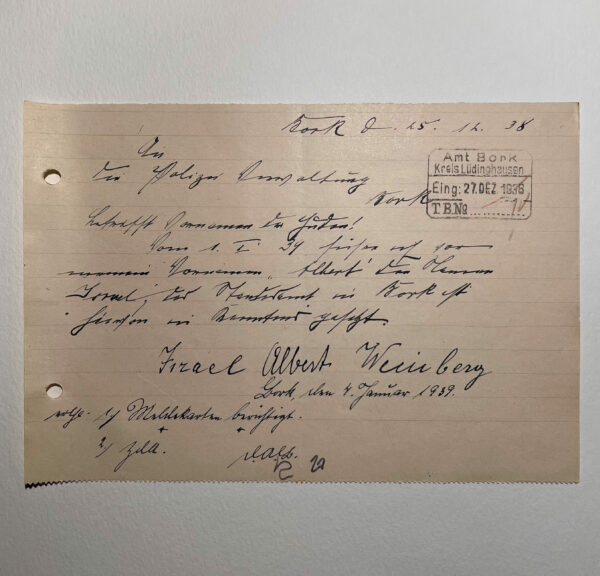 Bork d. 25. 12. 38
An
die Polizei Verwaltung
Bork
Amt Bork
Kreis Lüdinghausen
Eing: 27.DEZ.1938
TB№
betrefft Vornamen der Juden!
Vom 1. I. 39 führe ich vor
meinem Vornamen „Albert" den Namen
Israel, das Standesamt in Bork ist
hiervon in Kenntnis gesetzt.
Israel Albert Weinberg
Bork, den 4. Januar 1939.
1) Meldekarten berichtigt.
2) z.d.A.